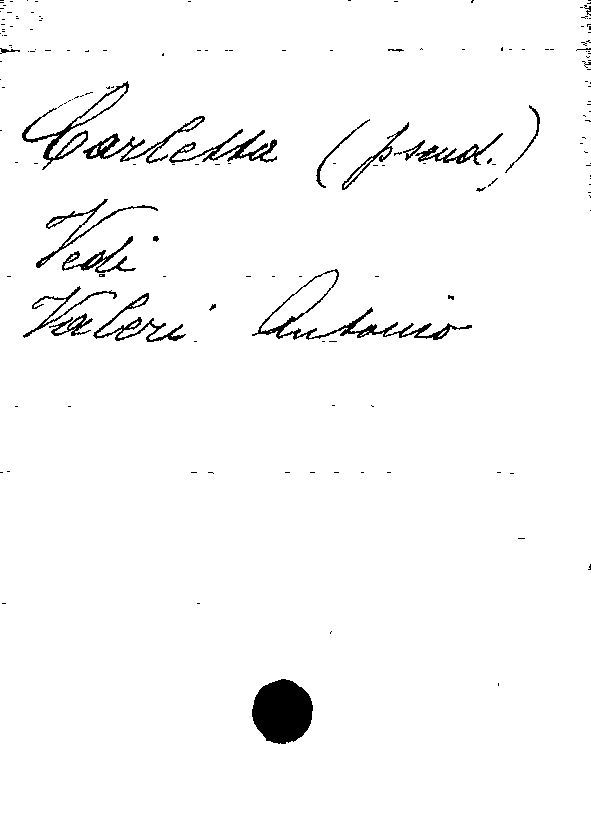 Carletta (pseud.)
Vedi
Valeri Antonio